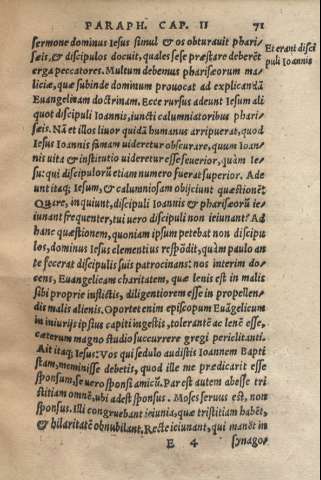 PARAPH. CAP. II 71
sermone dominus Iesus simul & os obturauit phari-
sæis, & discipulos docuit, quales sese præstare deberēt
erga peccatores. Multum debemus pharisæorum ma-
liciæ, quæ subinde dominum prouocat ad explicandā
Euangelicam doctrinam. Ecce rursus adeunt Iesum ali
quot discipuli Ioannis, iuncti calumniatoribus phari-
sæis. Nā et illos liuor quidā humanus arripuerat, quod
Iesus Ioannis famam uideretur obscurare, quum Ioan-
nis uita & institutio uideretur esse seuerior, quàm Ie-
su: qui discipulorū etiam numero fuerat superior. Ade
unt itaq; Iesum, & calumniosam obijciunt quæstionē:
Quare, inquiunt, discipuli Ioannis & pharisæorū ie-
iunant frequenter, tui uero discipuli non ieiunant? Ad
hanc quæstionem, quoniam ipsum petebat non discipu
los, dominus Iesus clementius respōdit, quàm paulo an
te fecerat discipulis suis patrocinans: nos interim do-
cens, Euangelicam charitatem, quæ lenis est in malis
sibi proprie inflictis, diligentiorem esse in propellen-
dis malis alienis. Oportet enim episcopum Euāgelicum
in iniurijs ipsius capiti ingestis, tolerantē ac lenē esse,
cæterum magno studio succurrere gregi periclitanti.
Ait itaq; Iesus: Vos qui sedulo audistis Ioannem Bapti
stam, meminisse debetis, quod ille me prædicarit esse
sponsum, se uero sponsi amicū. Par est autem abesse tri
stitiam omnē, ubi adest sponsus. Moses seruus est, non
sponsus. Illi congruebant ieiunia, quæ tristitiam habēt,
& hilaritatē obnubilant. Recte ieiunant, qui manēt in
E 4 synago-
Et erant disci
puli Ioannis